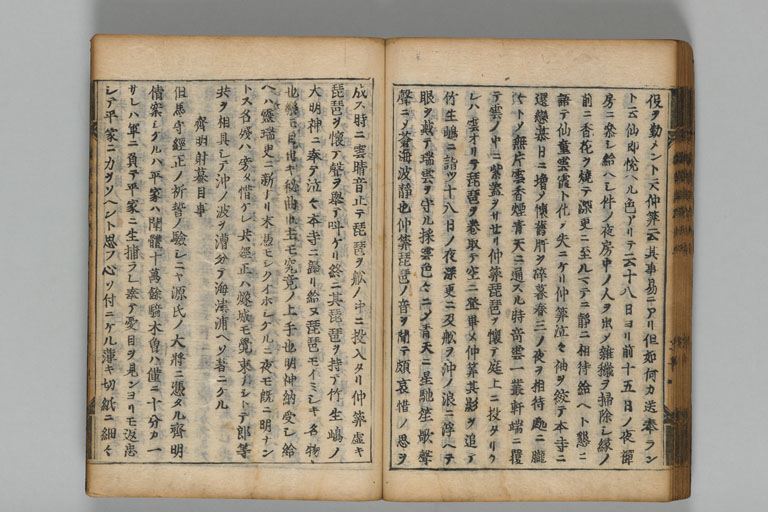 役ヲ勤メント云仲筭云其事易ニアリ但如何カ送奉ラン
ト云仙即悦ヘル色アリテ云十八日ヨリ前十五日ノ夜禪
房ニ參シ給ヘシ件ノ夜房中ノ人ヲ出ソ雜穢ヲ掃除シ縁ノ
前ニ香花ヲ燒テ深更ニ至ルマテニ靜ニ相待給ヘト懇ニ
語テ仙童雲霞ト化ノ失ニケリ仲筭泣々袖ヲ絞テ本寺ニ
還戀慕日ニ増ソ懷舊肝ヲ碎暮春三ノ夜ヲ相待處ニ朧
々トソ無片雲香煙青天ニ通スル特奇雲一叢軒端ニ覆
テ雲ノ中ニ紫鸞ヲサセリ仲筭琵琶ヲ懷テ庭上ニ投タリケ
レハ雲オリテ琵琶ヲ卷取テ空ニ登畢ヌ仲筭其影ヲ追テ
竹生嶋ニ詣ツ十八日ノ夜深更ニ及舩ヲ沖ノ浪ニ浮ヘテ
眼ヲ戴テ瑞雲ヲ守ル採雲色々ニノ青天ニ星馳笙歌聲
聲ニソ蒼海波靜也仲筭琵琶ノ音ヲ聞テ頗哀惜ノ思ヲ
成ス時ニ雲晴音止テ琵琶ヲ舩ノ中ニ投入タリ仲筭虚キ
琵琶ヲ懷テ聲ヲ擧テ叫ケリ終ニ其琵琶ヲ持テ竹生嶋ノ
大明神ニ奉テ泣々本寺ニ歸リ給ヌ琵琶モイミシキ名物
也經正目出キ秘曲也主モ究竟ノ上手也明神納受シ給
ヘハ靈瑞更ニ新ナリ末憑モシクイホシケルニ夜モ既ニ明ナン
トス名殘ハ旁タ惜ケレ共經正ハ燧城モ覺束ナシトテ郎等
共ヲ相具シテ沖ノ波ヲ漕分テ海津浦ヘソ著ニケル
齊明射蟇目事
但馬守經正ノ祈誓ノ驗シニヤ源氏ノ大將ニ憑タル齊明
倩案シケルハ平家ハ隨體十萬餘騎木曾ハ僅ニ十分カ一
サレハ軍ニ負テ平家ニ生捕ラレ奉テ憂目ヲ見ンヨリモ返忠
シテ平家ニ力ヲソヘント思フ心ソ付ニケル薄キ切紙ニ細々